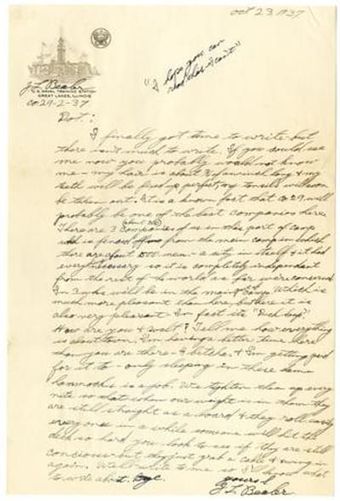 oct 23 1937
"I hope you can
read this I can't"
J L Beeler
U.S. NAVAL TRAINING STATION
GREAT LAKES, ILLINOIS
Co 29-2-37
Dot:
I finally got time to write but
there isn't much to write. If you could see
me now you probably would not know
me - my hair is about of an inch long & my
teeth will be fixed up perfect, my tonsils will soon
be taken out. It is a known fact that Co 29 will
probably be one of the best companies here.
There are 3 Companies of us in this part of camp
which is fenced off from the main camp in which
there are about men - a city in itself & it had
every so it is completely independent
from the rest of the world as far as were concerned
In 3 wks will be in the main camp. Which is
much more pleasant than here, but here it is
also very pleasant. In fact its
How are you & Walt? Tell me how everything
is about town. I'm having a better time here
than you are there - I betcha, & I'm getting paid
for it to - only sleeping in these
hammocks is a job. We tighten them up every
nite so that when our weight is in them they
are still straight as a board & they roll easily
everyone in a while someone will hit the
deck so hard you look to see if they are still
conscious - but they just grab a & swing in
again. Well write to me so I'll know what
to write about. Bye.
yours
J L Beeler